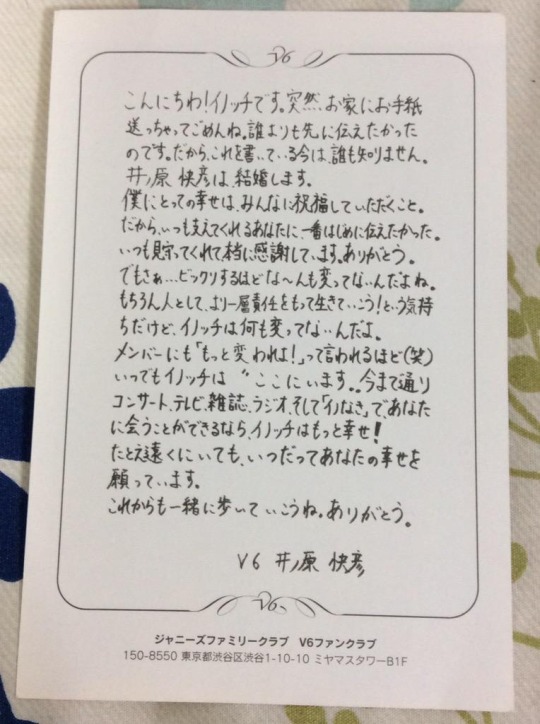 V6
こんにちわ!イノッチです。突然お家にお手紙
送っちゃってごめんね。誰よりも先に伝えたかった
のです。だから、これを書いている今は、誰も知りません。
井ノ原 快彦は、結婚します。
僕にとっての幸せは、みんなに祝福していただくこと。
だから、いつも支えてくれるあなたに、一番はじめに伝えたかった。
いつも見守ってくれて本当に感謝しています。ありがとう。
でもさぁ…ビックリするほどな〜んも変ってないんだよね。
もちろん人として、より一層責任をもって生きていこう!という気持
ちだけど、イノッチは何も変ってないんだよ。
メンバーにも「もっと変われよ!」って言われるほど(笑)
いつでもイノッチは〝ここにいます。今まで通り
コンサート、テレビ、雑誌、ラジオ、そして「イノなき」で、あなた
に会うことができるなら、イノッチはもっと幸せ!
たとえ遠くにいても、いつだってあなたの幸せを
願っています。
これからも一緒に歩いていこうね。ありがとう。
V6 井ノ原 快彦
V6
ジャニーズファミリークラブ V6ファンクラブ
150-8550 東京都渋谷区渋谷1-10-10 ミヤマスタワーB1F